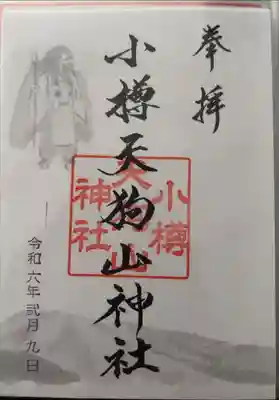 奉拝
小樽天狗山神社
小樽
天狗山
神社
令和六年弐月九日